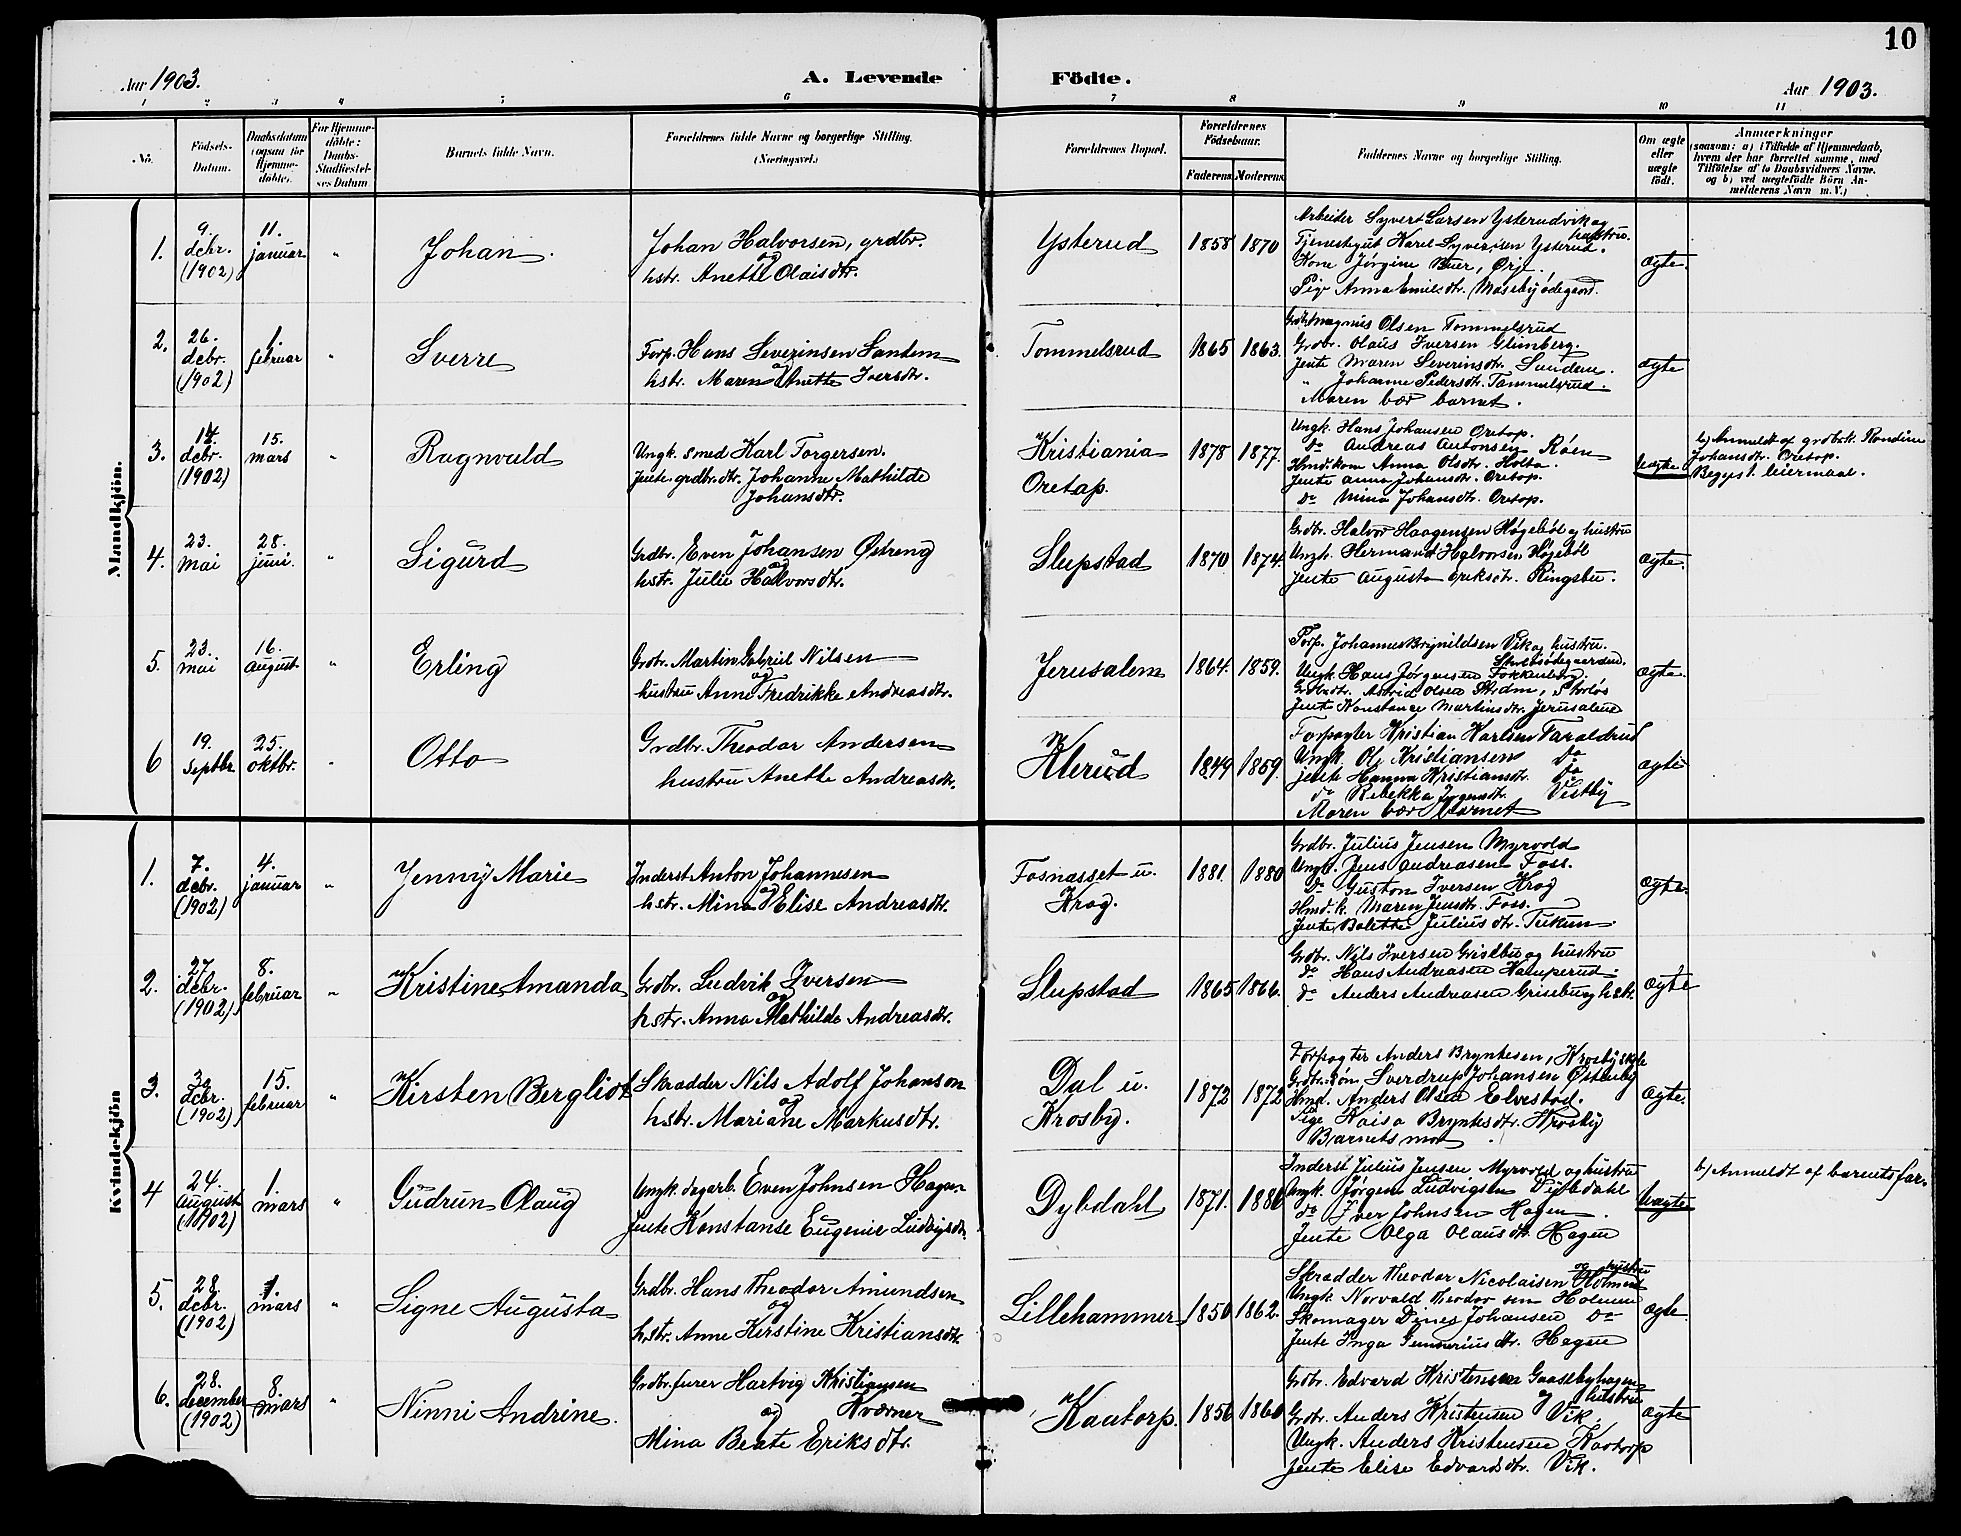 10
Aar 1903. A. Levende Födte. Aar 1903.
1 2 3 4 5 6 7 8 9 10 11
No.
Födsels-
Datum.
Daabsdatum
(ogsaa for
Hjemme-
döbte).
For Hjemme-
döbte:
Daabs-
Stadfæstel-
ses Datum
Barnets fulde Navn.
Forældrenes fulde Navne og borgerlige Stilling.
(Næringsvei.)
Forældrenes Bopæl.
Forældrenes
Födselsaar.
Faderens Moderens
Faddernes Navne og borgerlige Stilling.
Om ægte
eller
uægte
födt.
Anmærkninger
(saasom: a) i Tilfælde af Hjemmedaab,
hvem der har forrettet samme, med
Tilföielse af to Daabsvidners Navne.
og b) ved uægtefödte Börn An-
melderens Navn m. V.)
Mandkjön.
1.
9.
debr.
(1902)
11.
januar
"
Johan.
Johan Halvorsen, grdbr.
og
hstr. Anette Olaisdtr.
Ysterud
1858 1870
Arbeider Syvert Larsen Ysterudvik og
hustru.
Tjenestgut Karel Syversen Ysterud.
Kone Jørgine Buer, Ørje
Pige Anna Emilsdtr. Moseby ødegaard.
ægte.
2.
26.
debr.
(1902)
1.
februar
"
Sverre
Forp. Hans Severinsen Sandem
og
hstr. Maren Anette Iversdtr.
Tommelsrud
1865 1863.
Grdb. Magnus Olsen Tommelsrud
Grdbr. Olaus Iversen Glimberg.
Jente Maren Severinsdtr. Sandem.
" Johanne Pedersdtr. Tommelsrud.
Maren bar barnet.
ægte
3.
14.
debr.
(1902)
15.
mars
"
Ragnvald
Ungk. smed Karl Torgersen.
Jente grdbr.dtr. Johanne Mathilde
Johansdtr.
Kristiania
Oretop.
1878 1877.
Ungk. Hans Johansen Oretop.
do Andreas Antonsen Røen
Hmdskom Anna Olsdtr. Holta.
Jente Anna Johansdtr. Oretop.
do Mina Johansdtr. Oretop.
uægte
b) Anmeldt af grdbrk. Rondine
Johansdtr. Oretop.
Begges 1. leiermaal.
4.
23.
mai
28.
juni.
"
Sigurd
Grdbr. Even Johansen Østreng
og
hstr. Julie Halvorsdtr.
Slupstad
1870 1874.
Grdbr. Halvor Haagensen Høgebøl og hustru
Ungk. Hermand Halvorsen Høgebøl
Jente Augusta Eriksdtr. Ringsbu.
ægte.
5.
23.
mai
16.
august
"
Erling
Grdbr. Martin Gabriel Nilsen
og
hustru Anne Fredrikke Andreasdtr.
Jerusalem
1864. 1859.
Forp. Johannes Brynildsen Vik og hustru.
Ungk. Hans Jørgensen Fokkenberg.
Grdbrdtr. Astrid Olsen Strøm,
Jente Konstance Martinsdtr. Jerusalem
ægte.
6
19.
septbr.
25.
oktbr.
"
Otto
Grdbr. Theodor Andersen
hustru Anette Andreasdtr.
Klerud
1849 1859.
Forpagter Kristian Karlsen Taraldrud
Ungk. Ole Kristiansen do
jente Hanna Kristiansdtr. do
do Rebekka Jørgensdtr. Vestby
Maren bar barnet
ægte
Kvindekjön
1.
7.
debr.
(1902)
4.
januar
"
Jenny Marie
Inderst Anton Johannesen
og
hstr. Mina Elise Andreasdtr.
Fosnæsset u.
Krog.
1881. 1880
Grdbr. Julius Jensen Myrvold
Ungk. Jens Andreasen Foss.
do Guston Iversen Krog
Hmd.k. Maren Jensdtr. Foss.
Jente Bolette Juliusdtr. Tukun.
ægte.
2.
27.
debr.
(1902)
8.
februar
"
Kristine Amanda
Grdbr. Ludvik Iversen
og
hstr. Anna Mathilde Andreasdtr.
Slupstad
1865 1866.
Grdbr. Nils Iversen Grisebu og hustru
do Hans Andreasen Kamperud.
do Anders Andreasen Grisebu og hstr.
ægte
3.
30
debr.
(1902)
15.
februar
"
Kirsten Bergliot
Skrædder Nils Adolf Johanson
og
hstr. Mariane Markusdtr.
Dal u.
Krosby.
1872 1872
Forpagter Anders Bryntesen, Krosby
Grdbr.søn Sverdrup Johansen Østenby
Hmd. Anders Olsen Elvestad.
Pige Kaisa Bryntesdtr. Krosby
Barnets mor
ægte.
4
24.
august
(1902)
1.
mars
"
Gudrun Olaug
Ungk. dagarb. Even Johnsen Hagen
Jente Konstanse Eugenie Ludvigsdtr.
Dybdahl
1871. 1886
Inderst Julius Jensen Myrvold og hustru
Ungk. Jørgen Ludvigsen Dybdahl
do Iver Johnsen Hagen.
Jente Olga Olausdtr. Hagen
uægte
b) Anmeldt af barnets far.
5.
28.
debr.
(1902)
1.
mars
"
Signe Augusta
Grdbr. Hans Theodor Amundsen
og
hstr. Anne Kirstine Kristiansdtr.
Lillehammer
1850 1862.
og hustru
Skrædder Theodor Nicolaisen Holmen
Ungk. Norvald Theodorsen Holmen
Skomager Dines Johansen do
Jente Inga Gunneriusdtr. Hagen
ægte
6.
28.
december
(1902)
8.
mars
"
Ninni Andrine.
Grdbr. furer Hartvig Kristiansen
og Kværner
Mina Beate Eriksdtr.
Kautorp.
1856 1860
Grdbr. Edvard Kristensen Gaasebyhagen
og hustru
Grdbr. Anders Kristensen Vik.
Ungk. Anders Kristensen Kautorp
Jente Elise Edvardsdtr. Vik.
ægte